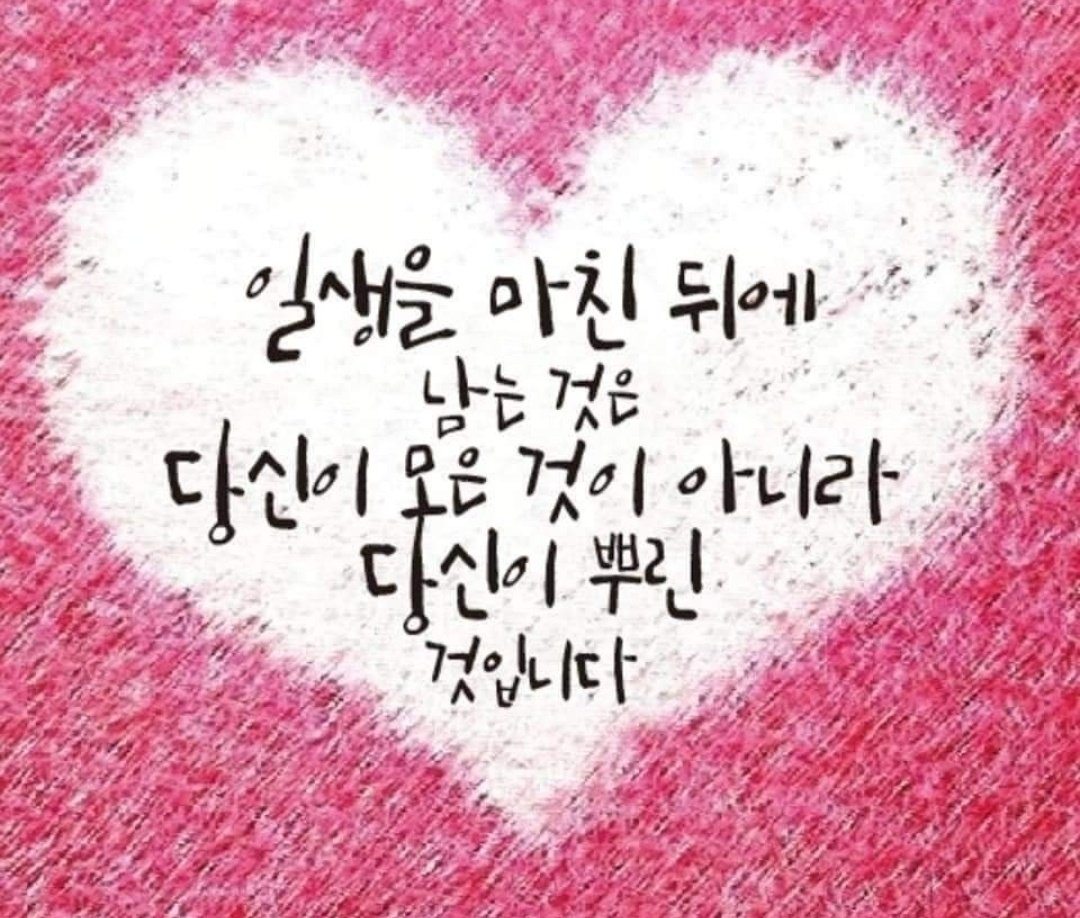 일생을 마친 뒤에
남는 것은
당신이 모은 것이 아니라
당신이 뿌린
것입니다